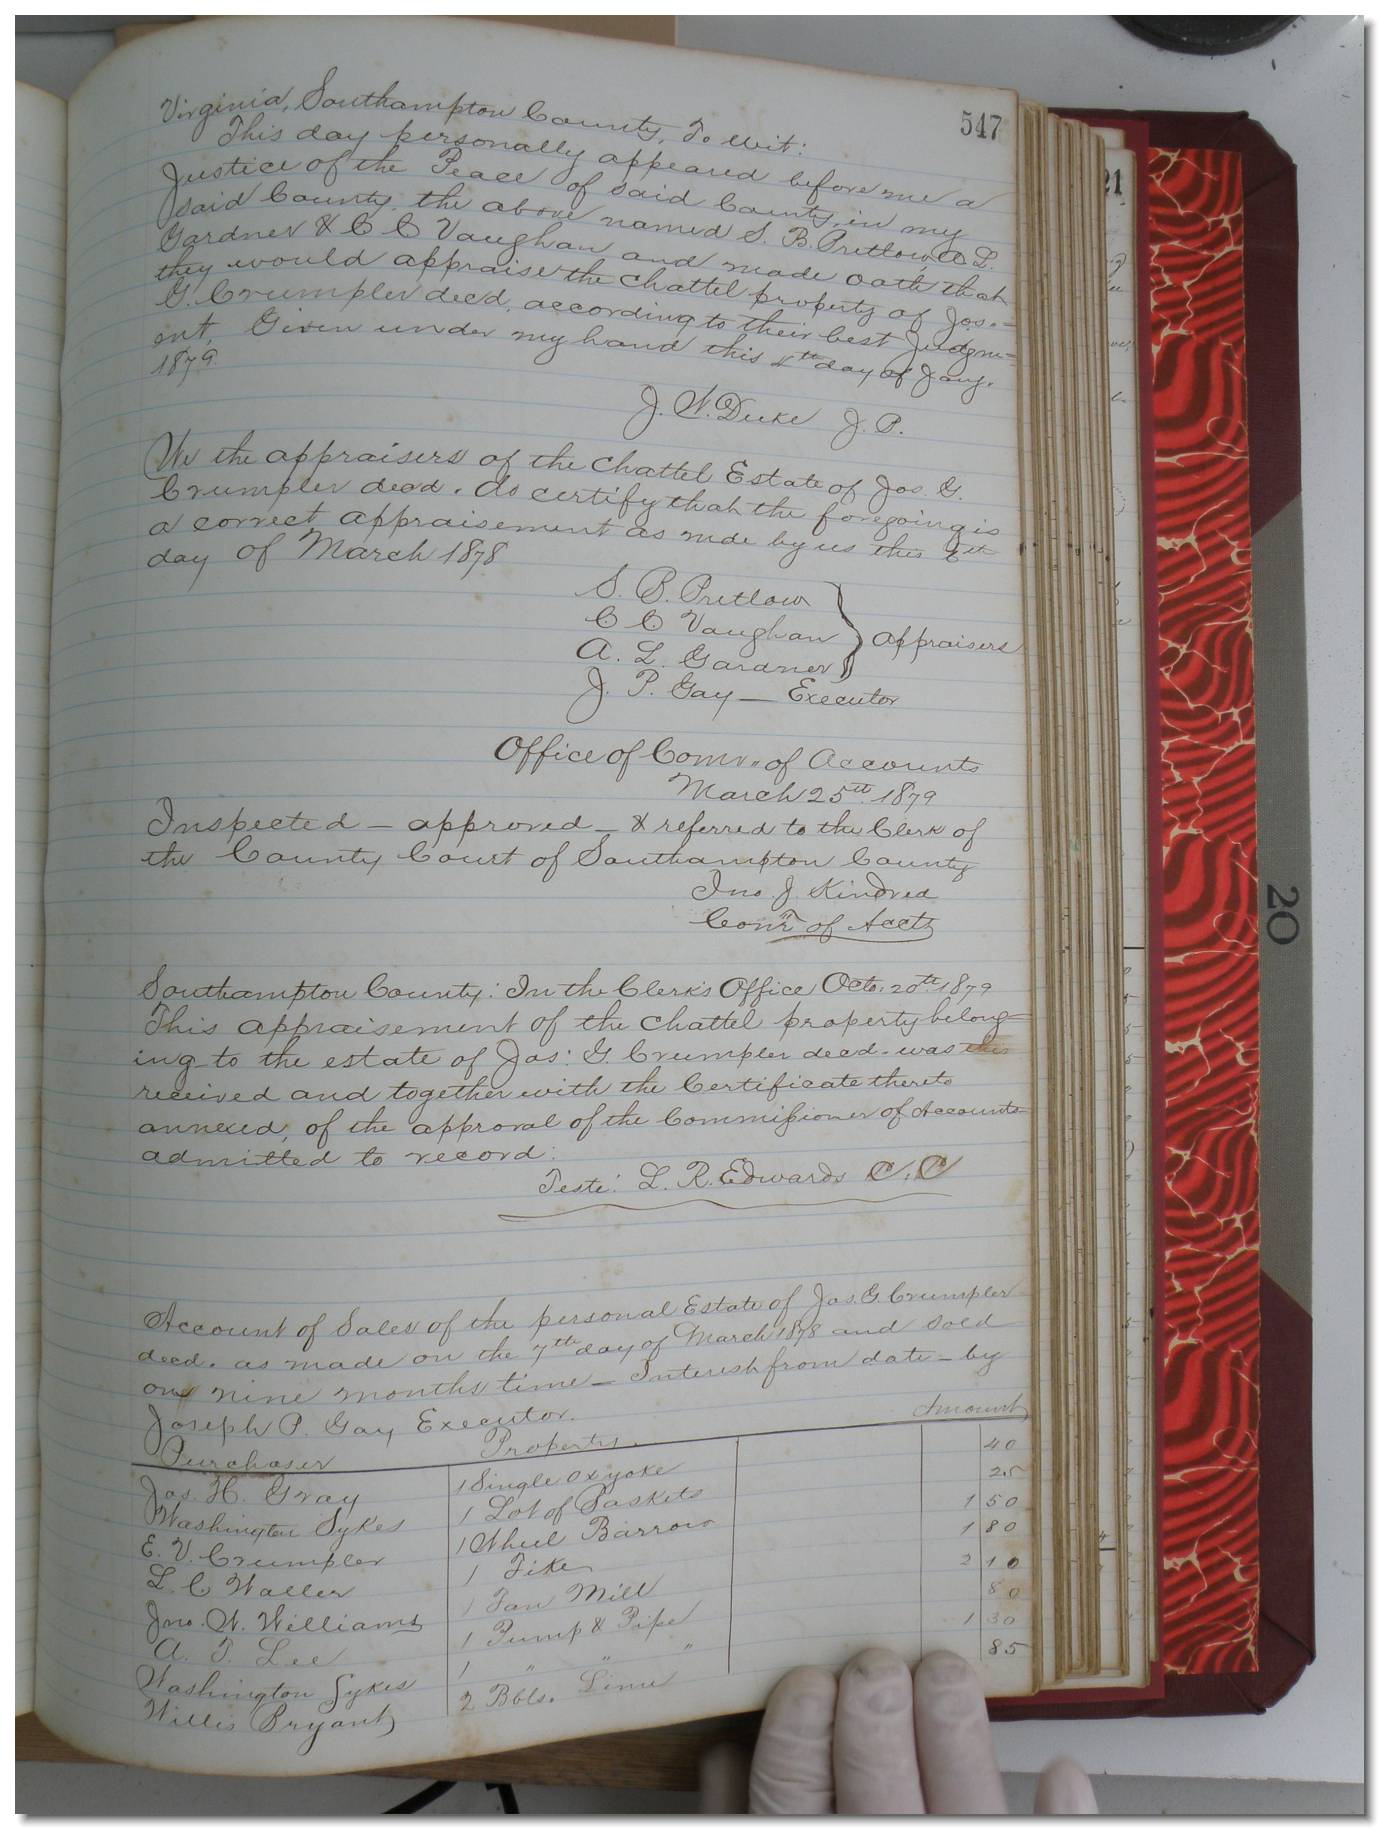 547
Virginia, Southampton County, To wit:
This day personally appeared before me a
Justice of the Peace of said County, in my
said County, the above named S. B. Pretlow, A. L.
Gardner & C C Vaughan and made oath that
they would appraise the chattel property of Jos.
G. Crumpler decd, according to their best Judgm=
ent, Given under my hand this day of Jany.
1879.
J. W. Duke J. P.
We the appraisers of the Chattel Estate of Jos. G.
Crumpler decd. do certify that the foregoing is
a correct appraisement as mde by us this
day of March 1878
S. B. Pretlow
C C Vaughan
A. L. Gardner
appraisers
J. P. Gay — Executor
Office of Comr. of Accounts
March 25th 1879
Inspected — approved — & referred to the Clerk of
the County Court of Southampton County
Jno J. Kindred
Comr of Accts
Southampton County: In the Clerk's Office Octo. 20th 1879
This appraisement of the chattel property belong=
ing to the estate of Jas: G. Crumpler decd. was this
received and together with the Certificate thereto
annexed, of the approval of the Commissioner of Accounts
admitted to record:
Teste: L. R. Edwards C. C
Account of Sales of the personal Estate of Jas. G. Crumpler
decd. as made on the 7th day of March 1878 and sold
on nine months time — Interest from date — by
Joseph P. Gay Executor.
Purchaser Property. Amount
Jas. H. Gray 1 Single Ox yoke 40
Washington Sykes 1 Lot of Baskets 25
E. V. Crumpler 1 Wheel Barrow 1 50
L. C Waller 1 Fike 1 80
Jno. W. Williams 1 Fan Mill 2 10
A. T. Lee 1 Pump & Pipe 80
Washington Sykes 1 " " " 1 30
Willis Bryant 2 Bbls. Lime 85
21
20